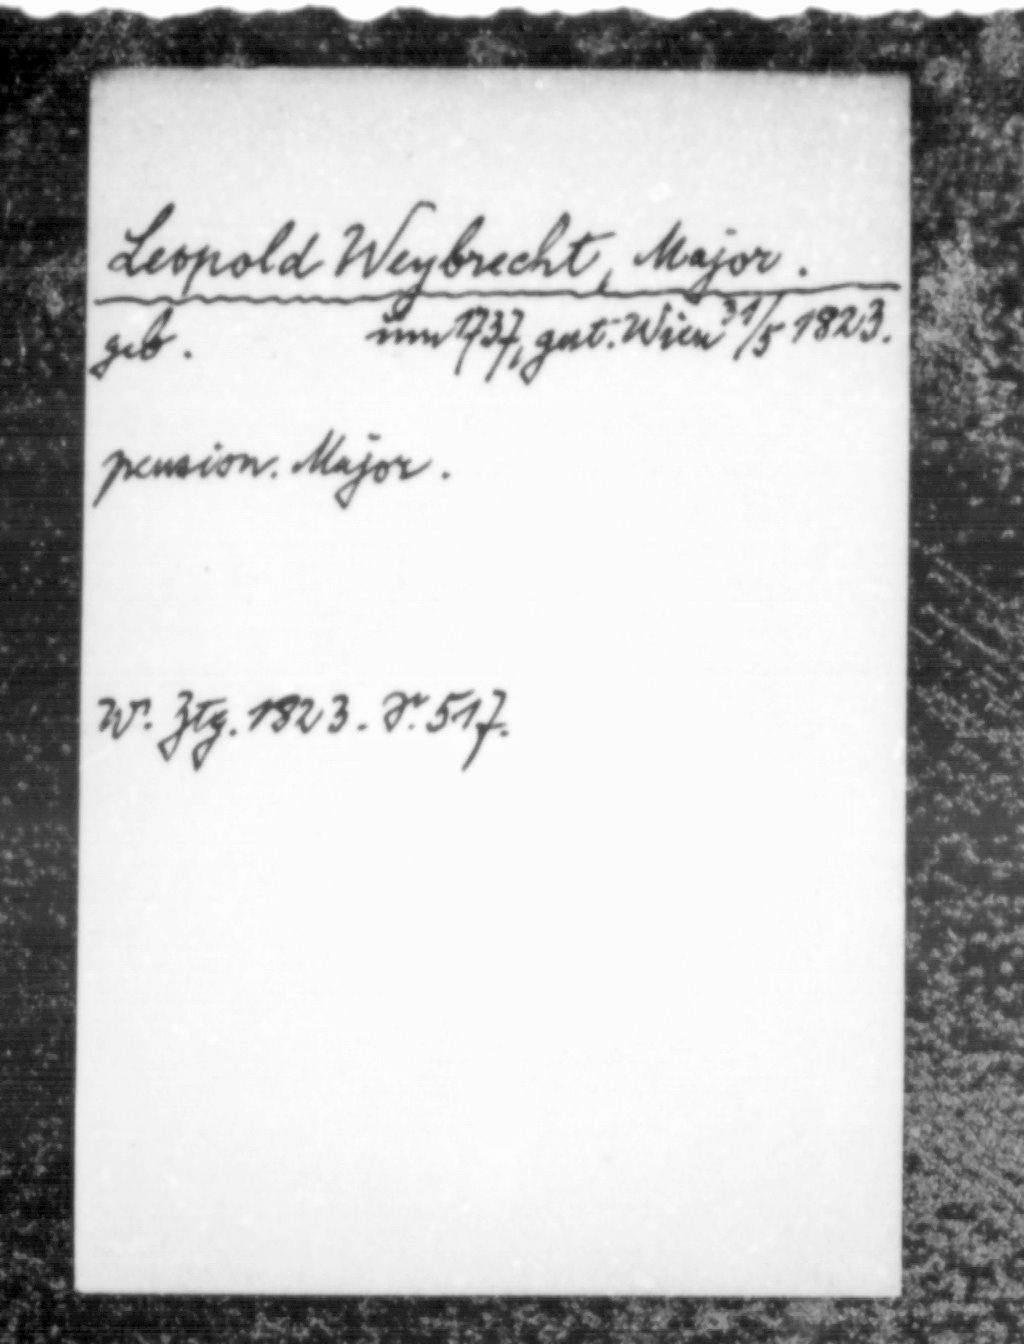 Leopold Weybrecht, Major.
geb. um 1737, gest. Wien 31/5 1823.
pension. Major.
W. Ztg. 1823. S. 517.